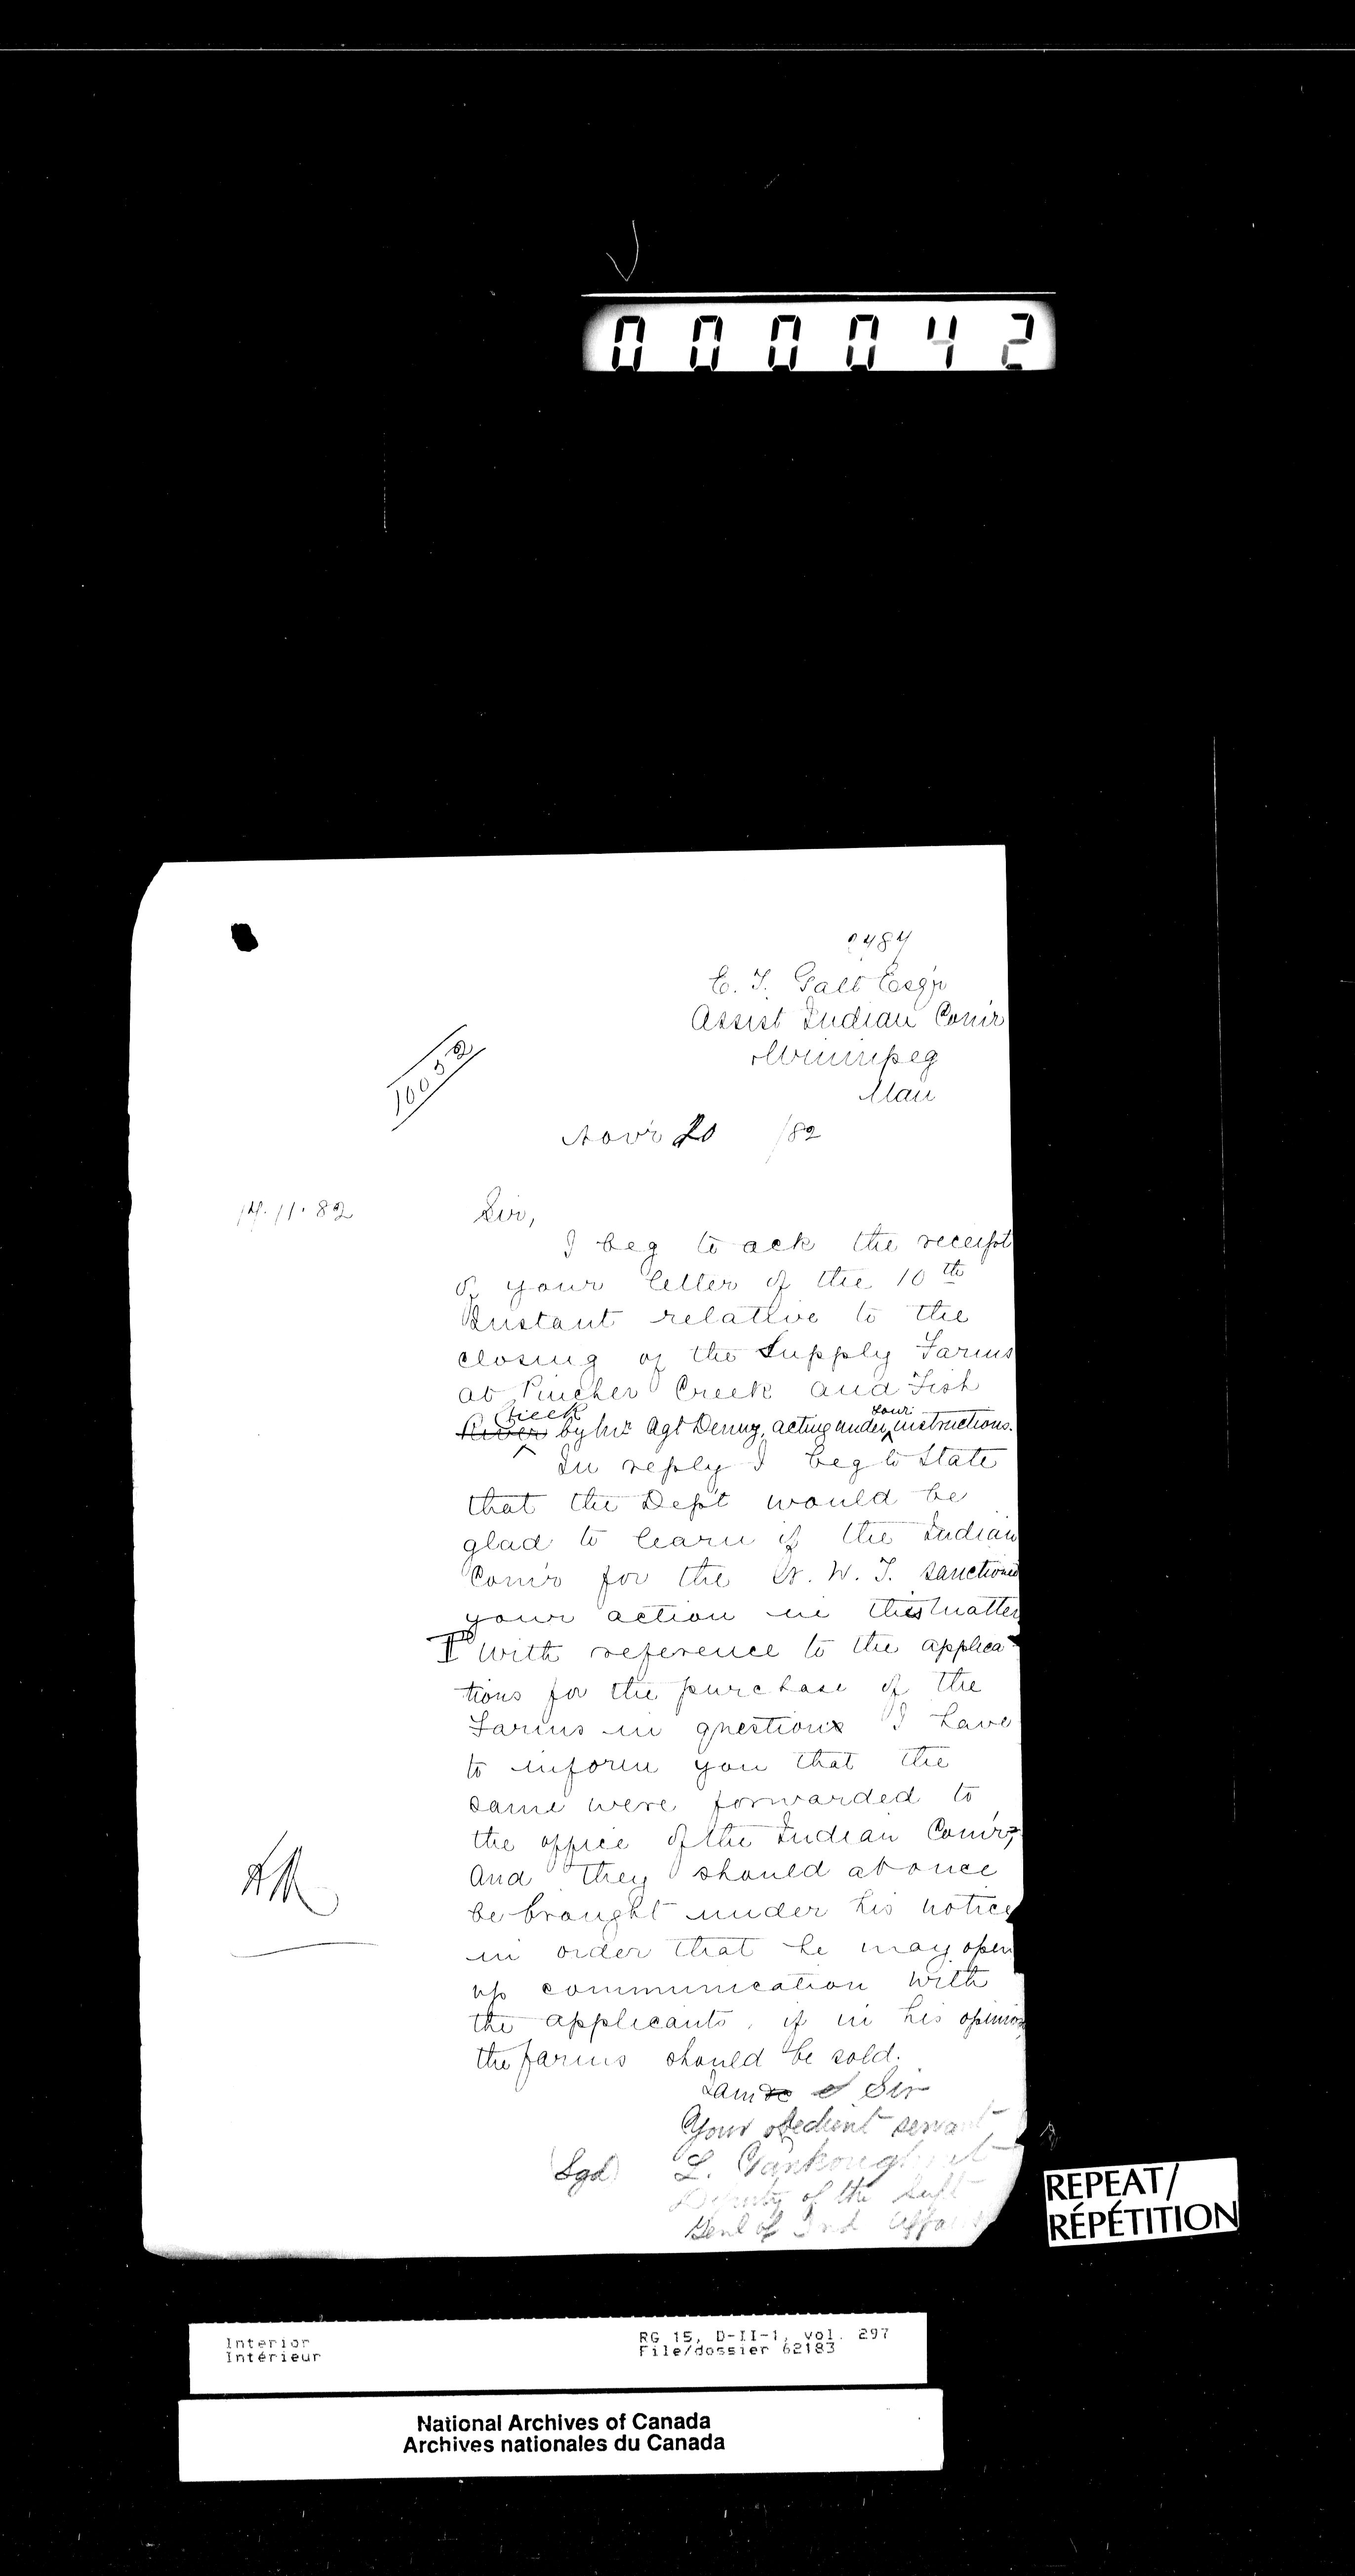 000042
2484
E. T. Galt Esq'r
Assist Indian Com'r
Winnipeg
Man
10052
Nov'r 20 /82
14.11.82
Sir,
I beg to ack the receipt
of your letter of the 10th
Instant relative to the
closing of the Supply Farms
at Pincher Creek and Fish
Creek your
River by Mr Agt Denny, acting under instructions.
In reply I beg to State
that the Dep't would be
glad to learn if the Indian
Com'r for the N. W. T. sanctioned
your action in this matter
With reference to the applica-
tions for the purchase of the
Farms in question I have
to inform you that the
same were forwarded to
the office of the Indian Com'r,
and they should at once
be brought under his notice
in order that he may open
up communication with
the applicants, if in his opinion
the farms should be sold.
I am Sir
Your obedient servant
(Sgd) L. Vankoughnet
Deputy of the Supt
Genl of Ind Affairs
REPEAT/
RÉPÉTITION
Interior RG 15, D-II-1, vol. 297
Intérieur File/dossier 62183
National Archives of Canada
Archives nationales du Canada